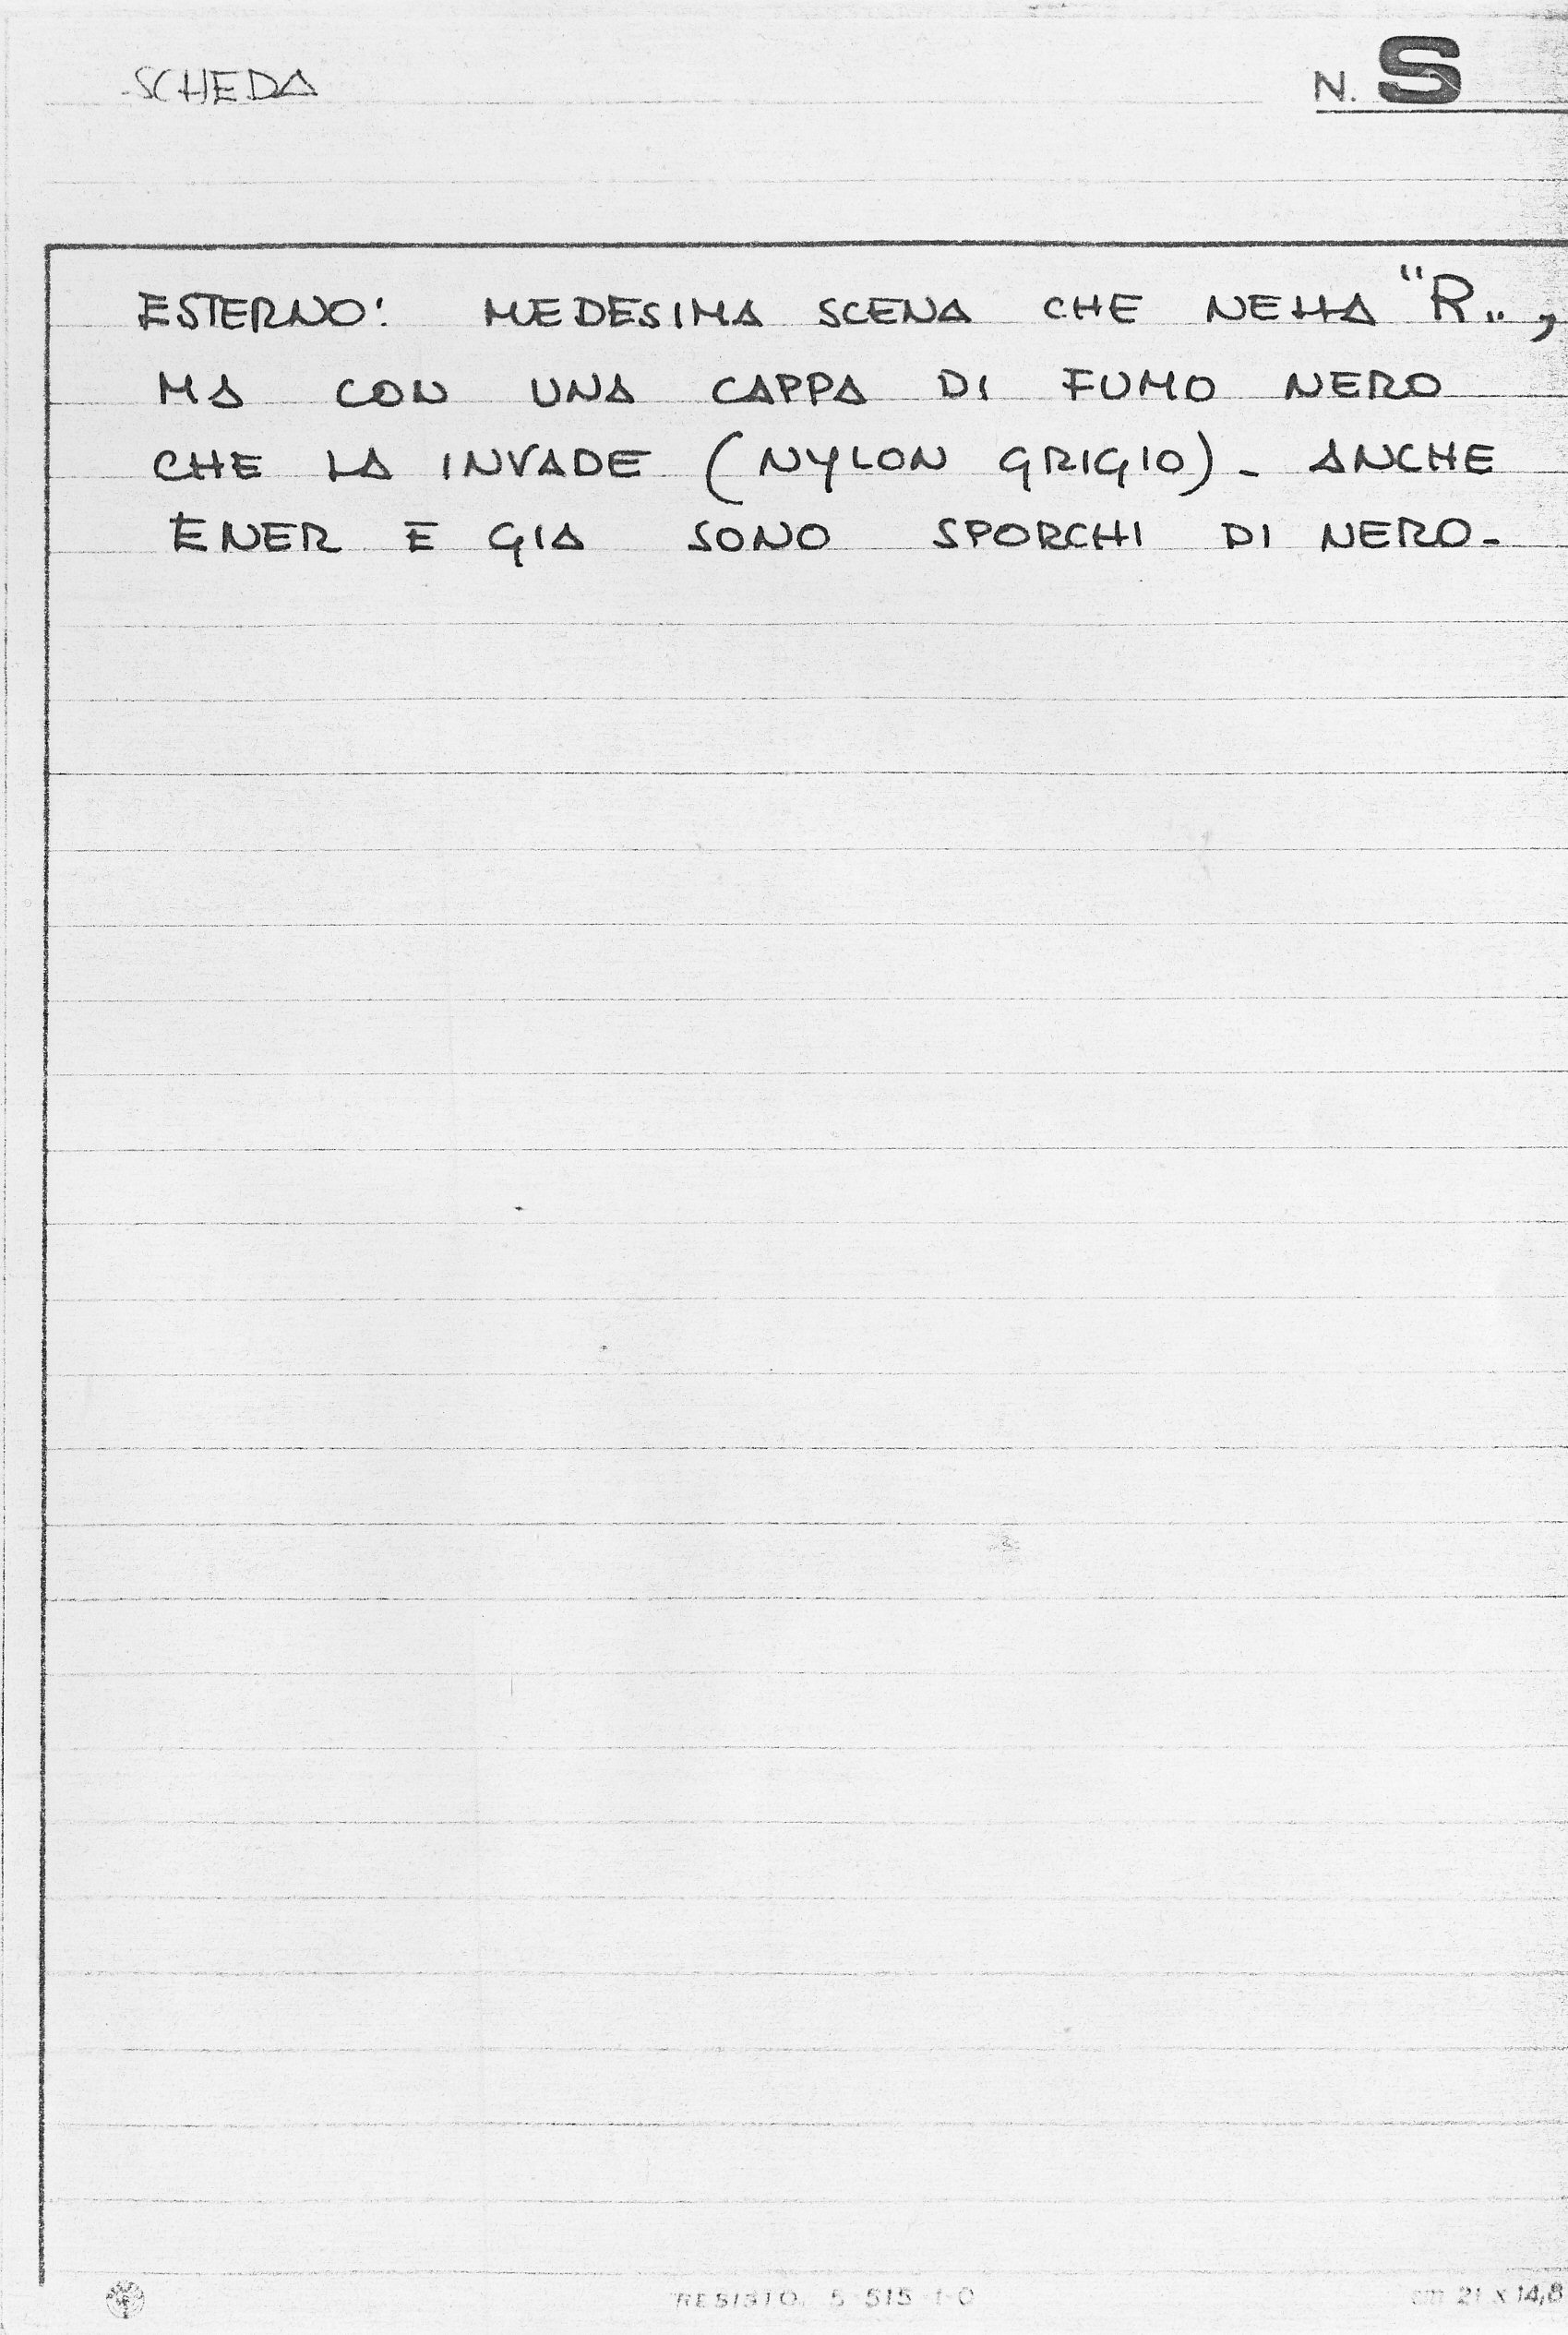 SCHEDA
N. S
ESTERNO: MEDESIMA SCENA CHE NELLA "R",
MA CON UNA CAPPA DI FUMO NERO
CHE LA INVADE (NYLON GRIGIO)- ANCHE
ENER E GIA SONO SPORCHI DI NERO-
cm 21 x 14,8